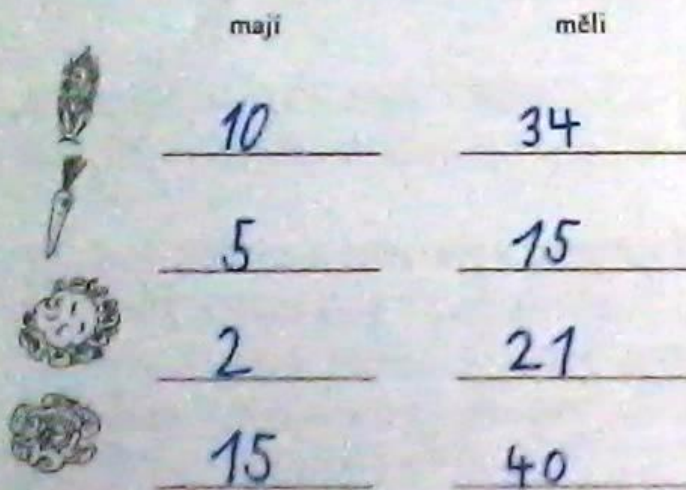 mají měli
10 34
5 15
2 21
15 40